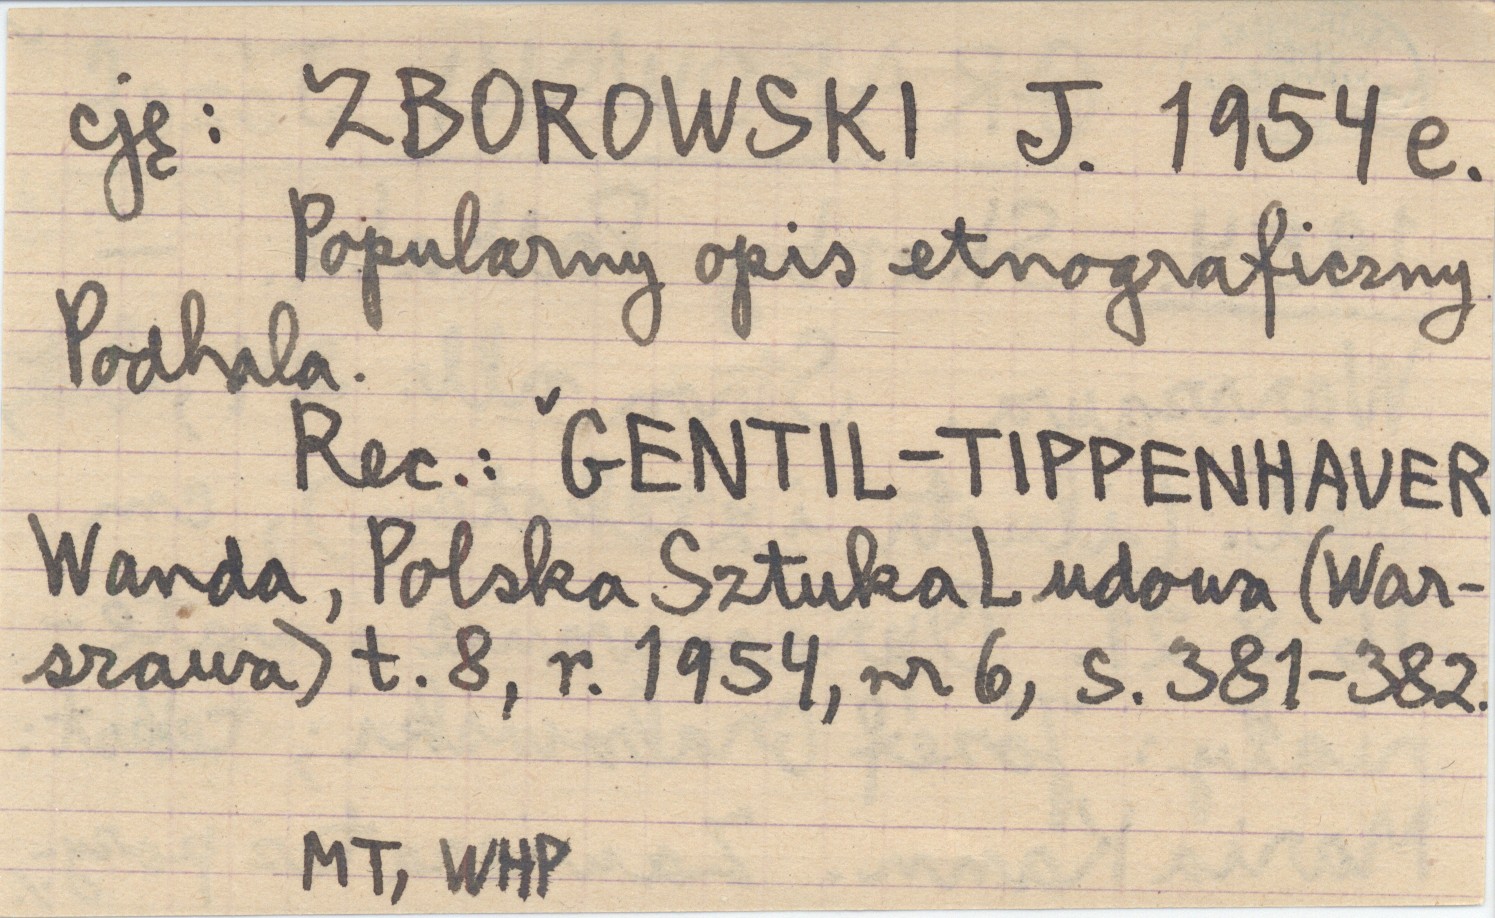 cję: ZBOROWSKI J. 1954 e.
Popularny opis etnograficzny
Podhala.
Rec.: GENTIL-TIPPENHAUER
Wanda, Polska Sztuka Ludowa (War-
szawa) t. 8, r. 1954, nr 6, s. 381-382.
MT, WHP